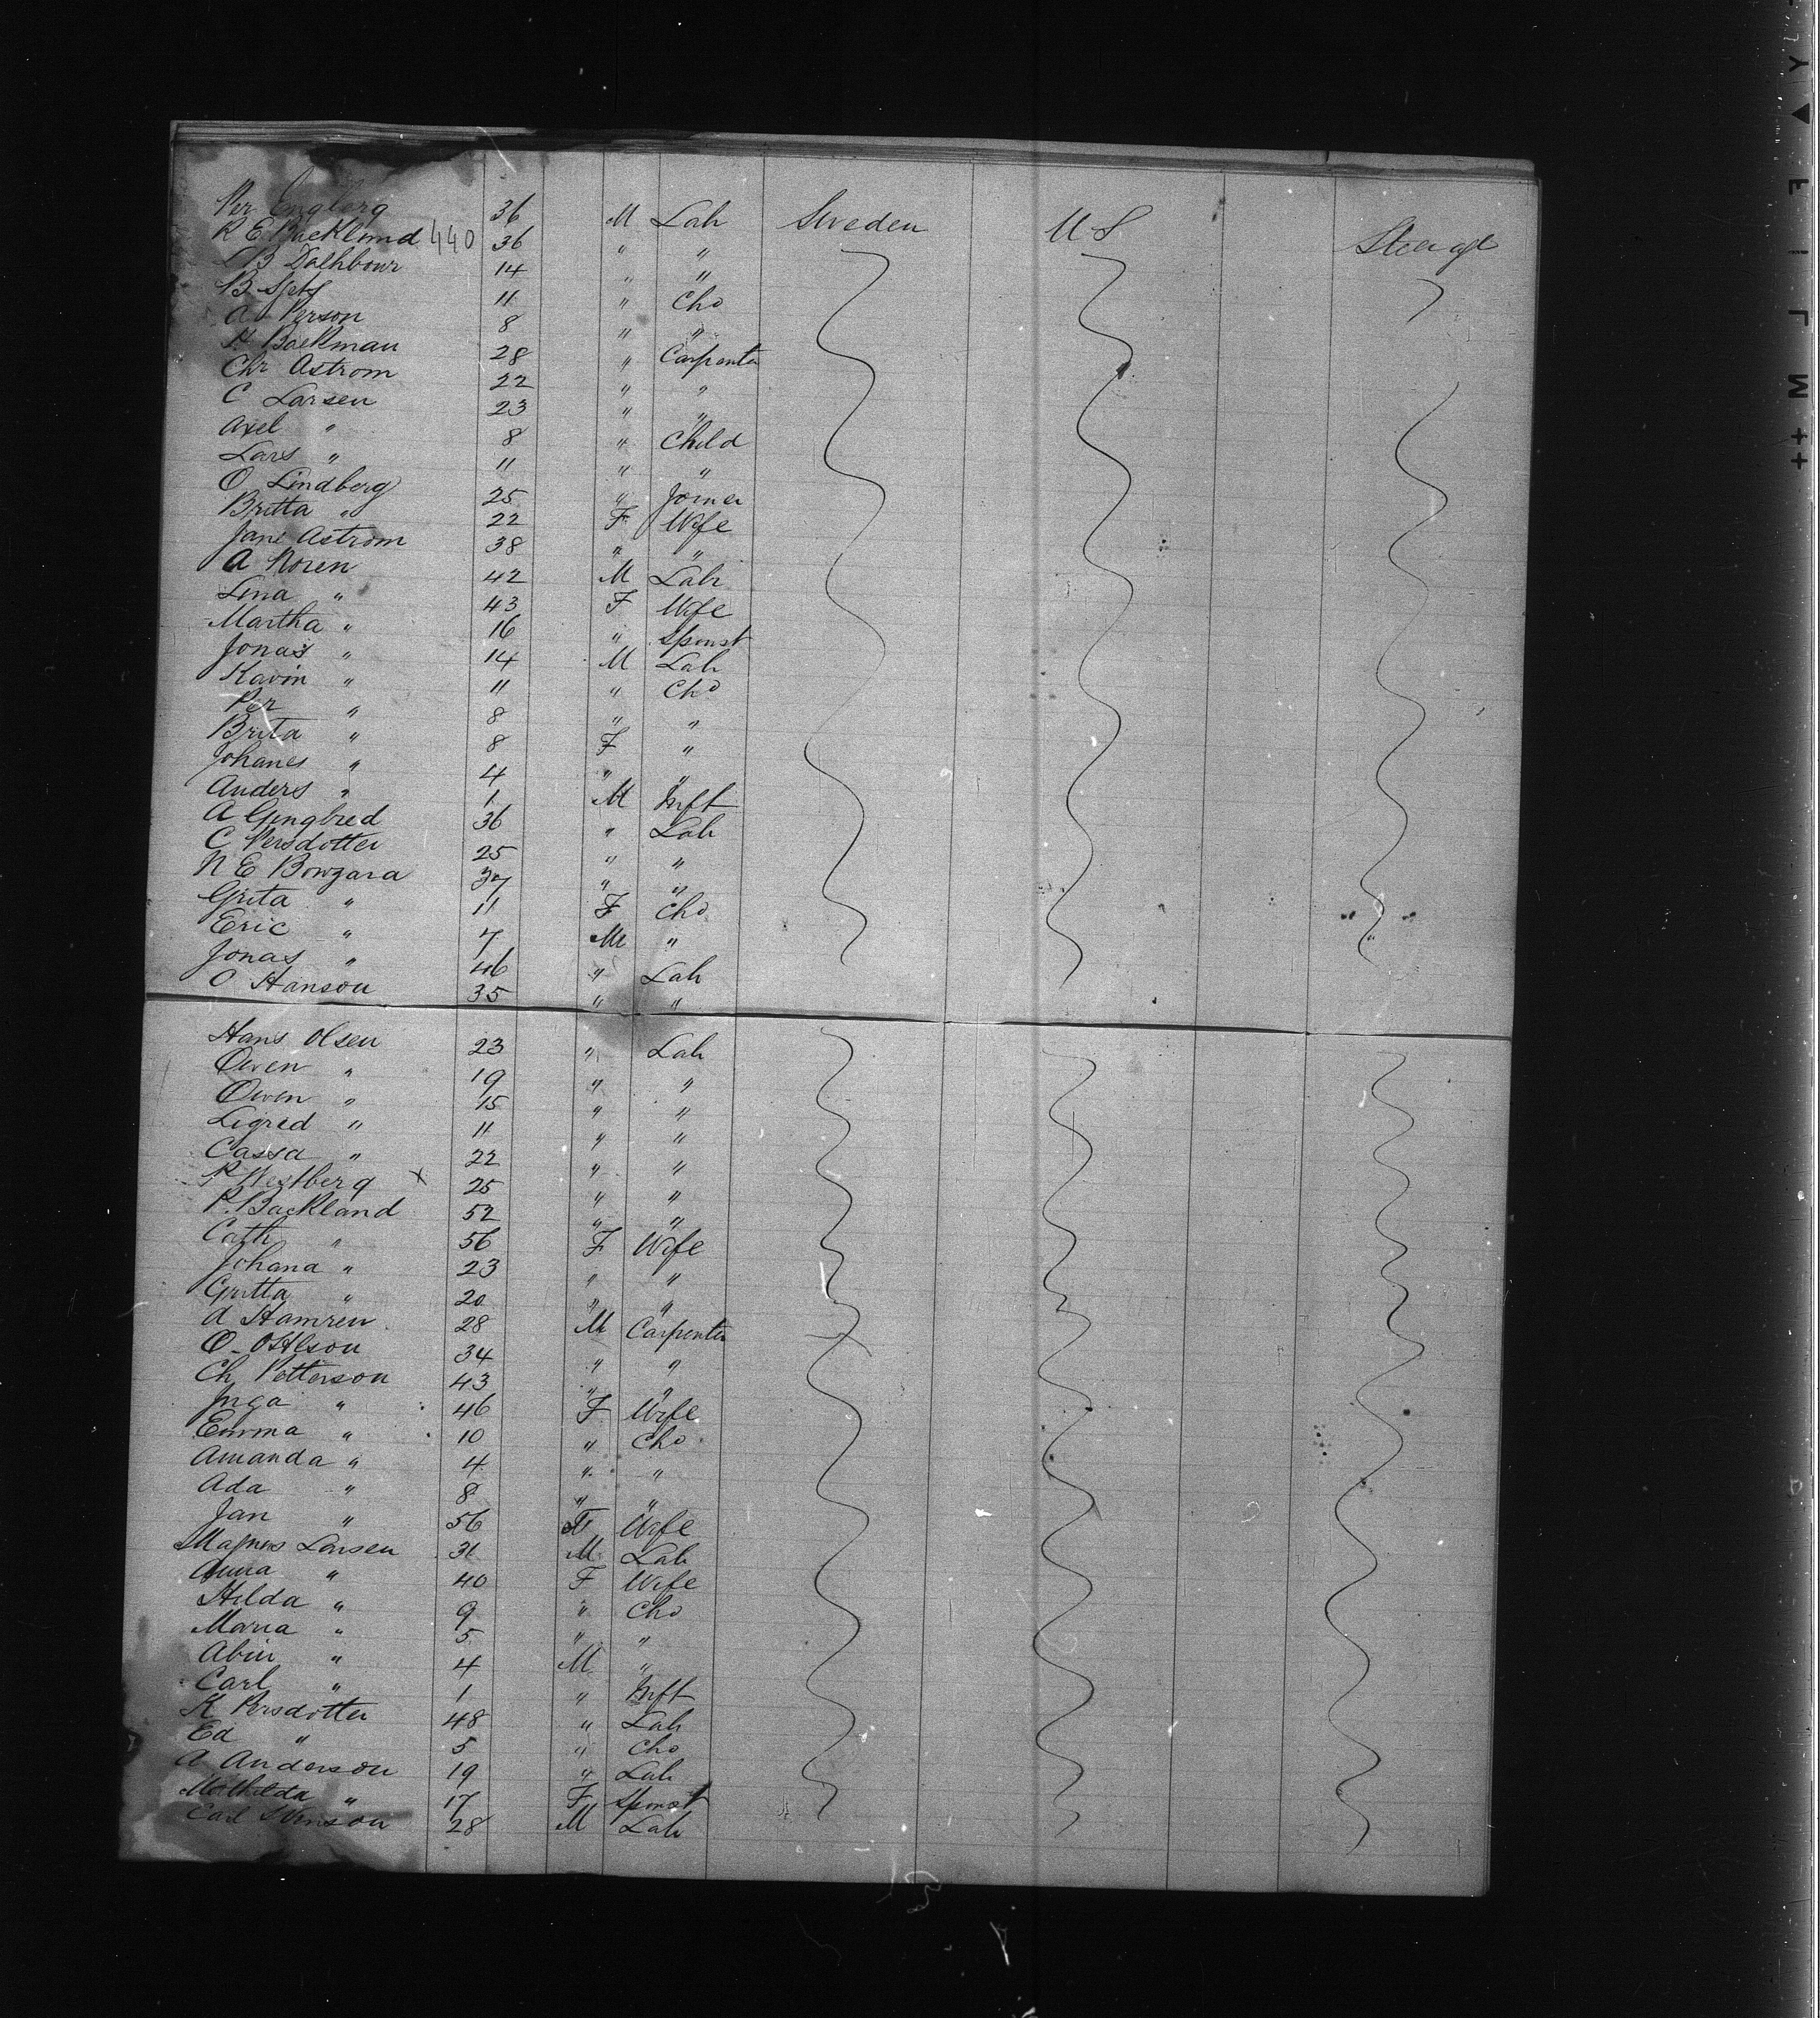 Per Englerg 36 M Lab Sweden U S Steerage
R E Backlund 440 36 " "
Dalhbour 14 " "
B 11 " Chd
A Person 8 " "
H Backman 28 " Carpenter
Chr Astrom 22 " "
C Larsen 23 " "
Axel " 8 " Child
Lars " 11 " "
O Lindberg 25 " Joiner
Britta " 22 F Wife
Jane Astrom 38 " "
A Noren 42 M Lab
Lina " 43 F Wife
Martha " 16 " Spinst
Jonas " 14 M Lab
Kavin " 11 " Chd
Per " 8 " "
Brita " 8 F "
Johanes " 4 " "
Anders " 1 M Inft
A Gungbred 36 " Lab
C Persdotter 25 " "
N E Bowgara 37 " "
Grita " 11 F Chd
Eric " 7 M "
Jonas " 46 " Lab
O Hanson 35 " "
Hans Olsen 23 " Lab
Owen " 19 " "
Owen " 15 " "
Ligred " 11 " "
Cassa " 22 " "
P Westberg x 25 " "
P. Backland 52 " "
Cath " 56 F Wife
Johana " 23 " "
Gritta " 20 " "
A Hamren 28 M Carpenter
O. Ostlson 34 " "
Ch Petterson 43 " "
Inga " 46 F Wife
Emma " 10 " Chd
Amanda " 4 " "
Ada " 8 " "
Jan " 56 F Wife
Magnus Larsen 31 M Lab
Anna " 40 F Wife
Hilda " 9 " Chd
Maria " 5 " "
Abin " 4 M "
Carl " 1 " Inft
K Persdotter 48 " Lab
Ed " 5 " Chd
A Anderson 19 " Lab
Mathilda " 17 F Spinst
Carl 28 M Lab